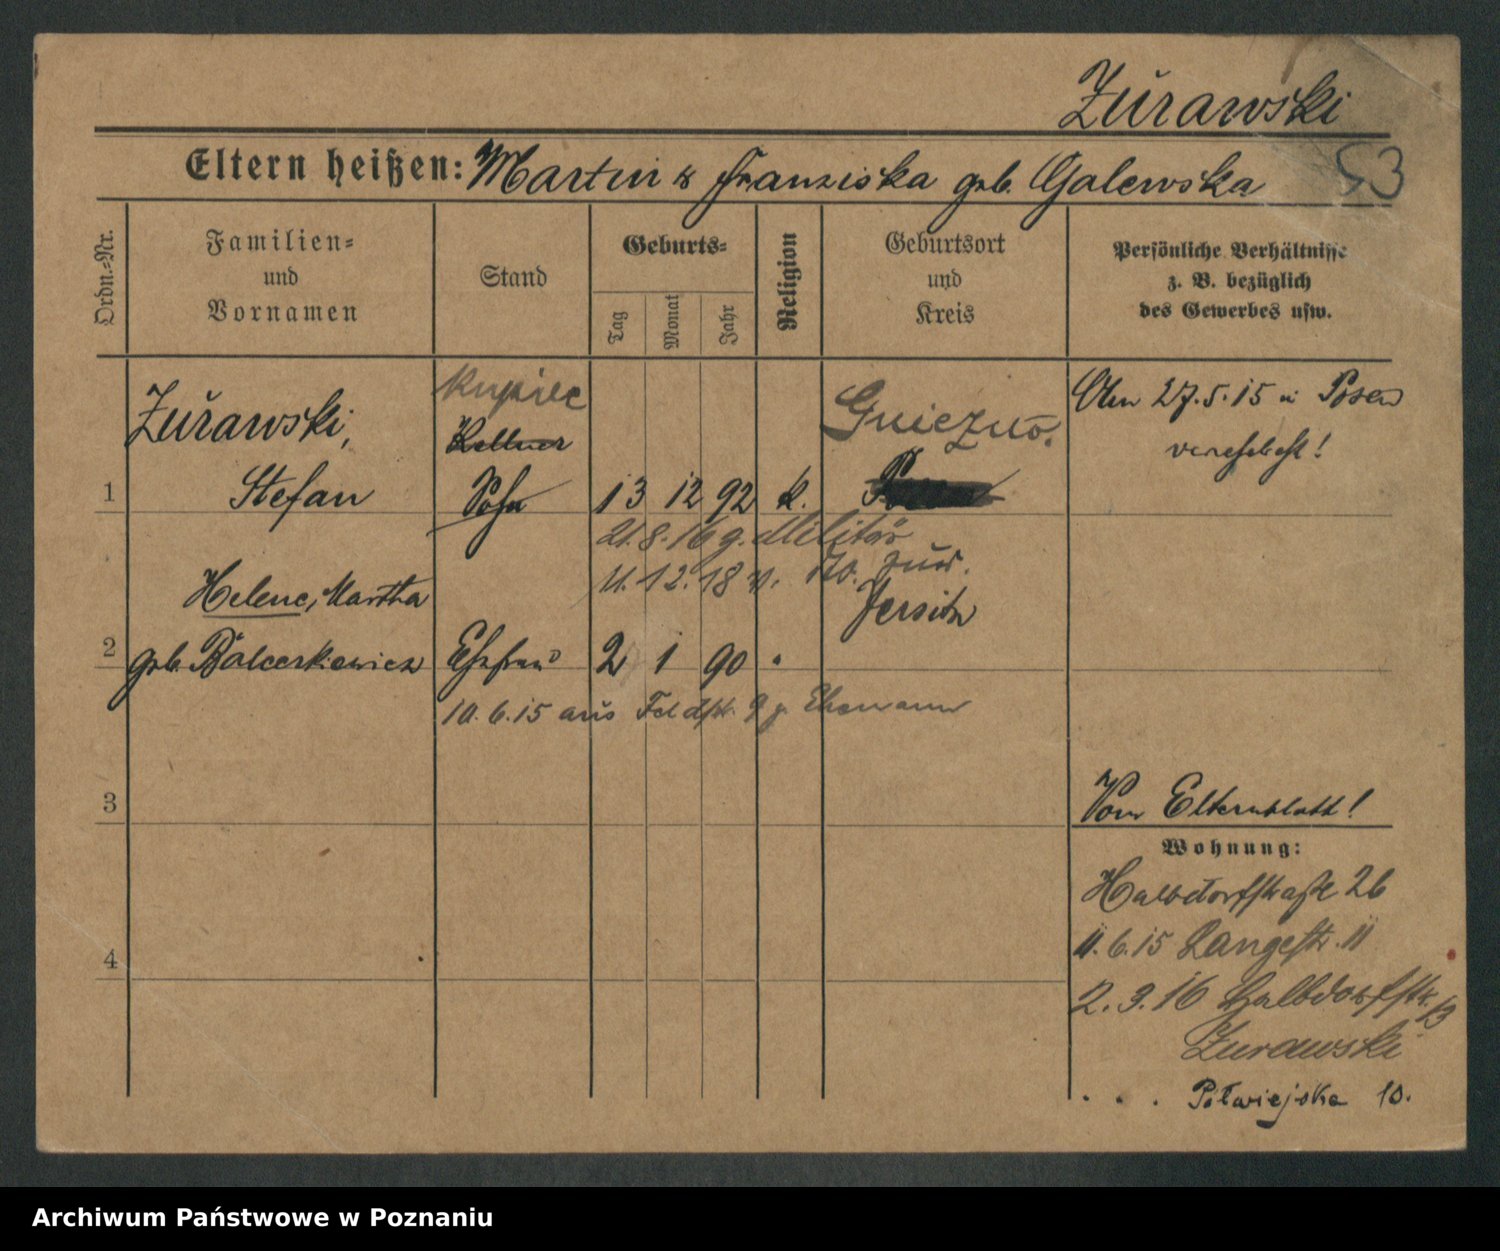 Żurawski
53
Eltern heißen: Martin & Franziska geb. Galewska
Ordn.-Nr.
Familien-
und
Vornamen
Stand
Geburts-
Tag
Monat
Jahr
Religion
Geburtsort
und
Kreis
Persönliche Verhältnisse
z. B. bezüglich
des Gewerbes usw.
Kupiec
Żurawski,
Kellner
Gniezno.
Am 27.5.15 in Posen
verehelicht!
1 Stefan Sohn 13 12 92 k.
21.8.16 z. Militär
11.12.18 v. zur.
Helene, Martha
Jersitz
2 geb. Balcerkiewicz Ehefrau 2 1 90 "
10.6.15 aus Feldstr. 9 z. Ehemann
3
Vom Elternblatt!
Wohnung:
Halbdorfstraße 26
11.6.15 Langestr. 11
4
2.3.16 Halbdorfstr. 13
Zurawski
. . . Półwiejska 10.
Archiwum Państwowe w Poznaniu